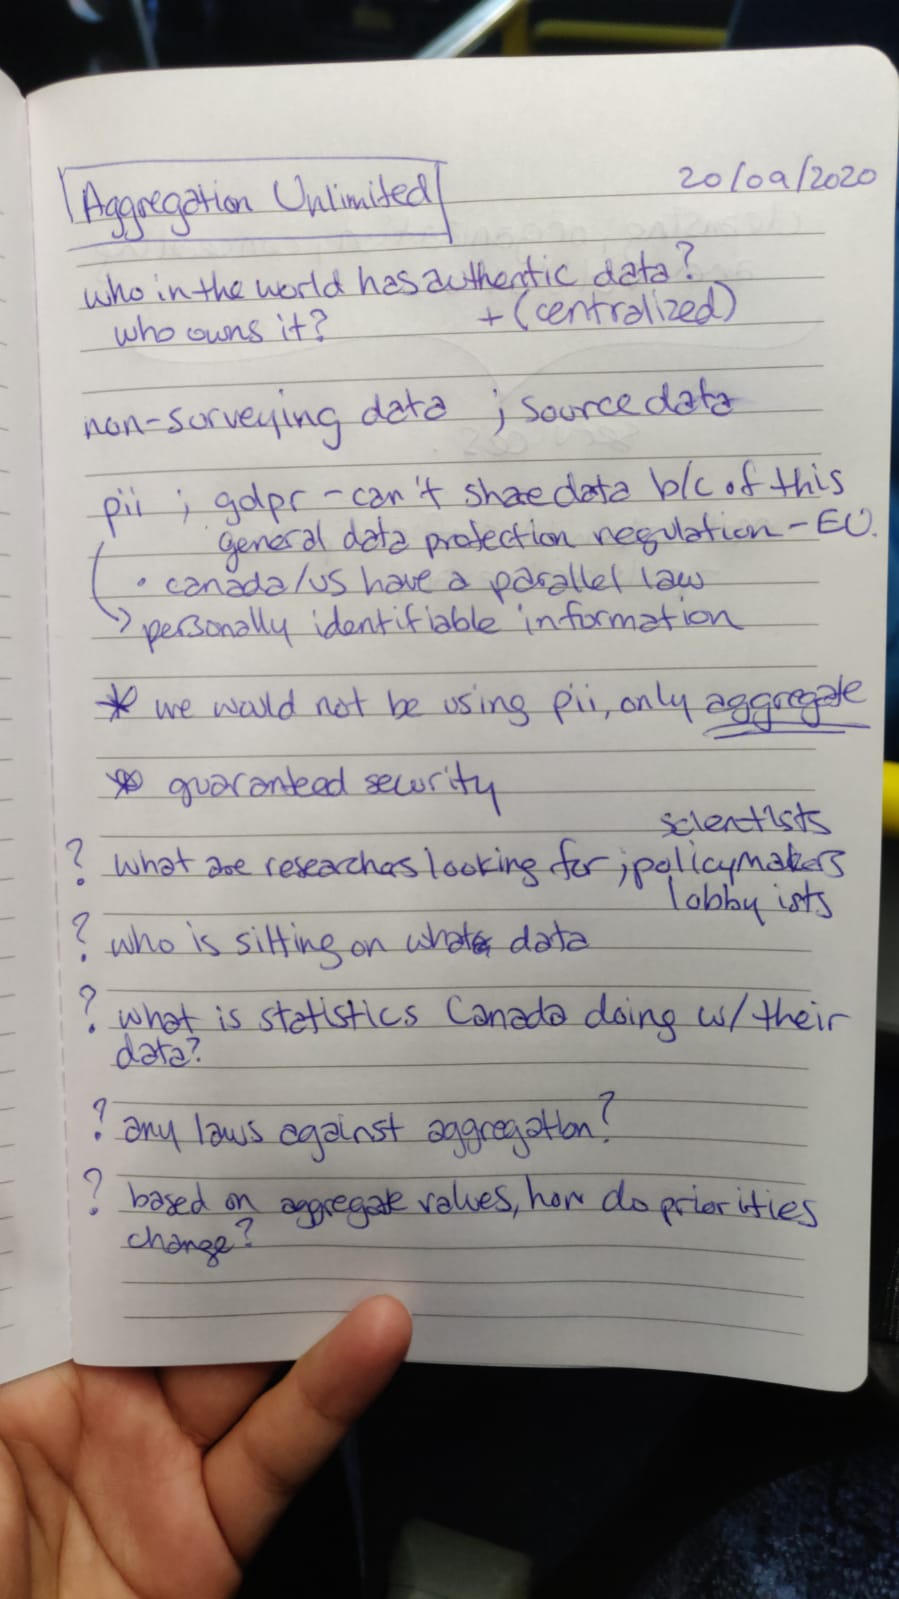 Aggregation Unlimited
20/09/2020
who in the world has authentic data?
+ (centralized)
who owns it?
non-surveying data ; source data
pii ; gdpr - can't share data b/c of this
general data protection regulation - EU.
• canada/us have a parallel law
→ personally identifiable information
* we would not be using pii, only aggregate
* guaranteed security
scientists
? what are researchers looking for ; policymakers
lobbyists
? who is sitting on what data
? what is statistics Canada doing w/ their
data?
? any laws against aggregation?
? based on aggregate values, how do priorities
change?